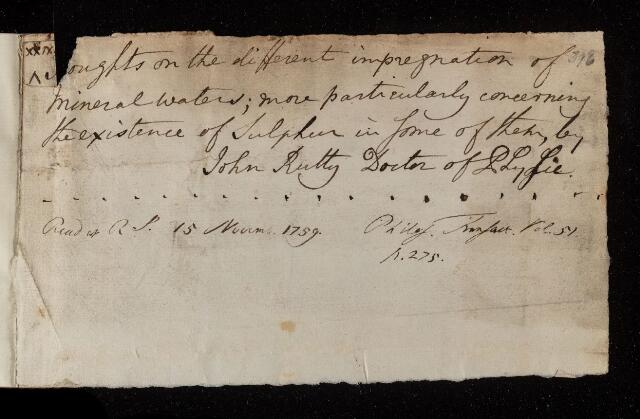 xxix
oughts on the different impregnation of
mineral waters; more particularly concerning
the existence of Sulphur in some of them, by
John Rutty Doctor of Physic.
Read at R S. 15 Novemb. 1759. Philos. Transact. Vol. 51.
p. 275.